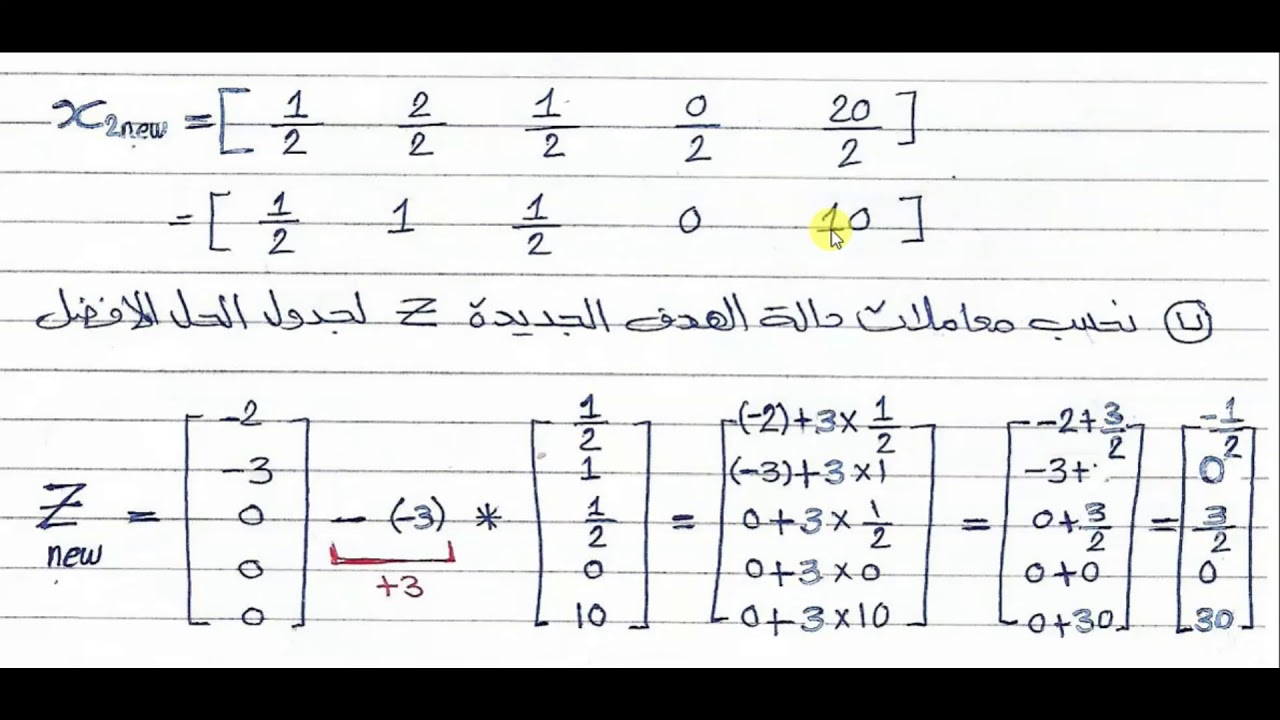 x₂new = [ 1/2 2/2 1/2 0/2 20/2 ]
= [ 1/2 1 1/2 0 10 ]
(ب) نحسب معاملات دالة الهدف الجديدة Z لجدول الحل الافضل
Z new = [ -2 -3 0 0 0 ] - (-3) * [ 1/2 1 1/2 0 10 ] = [ (-2)+3×1/2 (-3)+3×1 0+3×1/2 0+3×0 0+3×10 ] = [ -2+3/2 -3+ 0+3/2 0+0 0+30 ] = [ -1/2 0 3/2 0 30 ]
+3